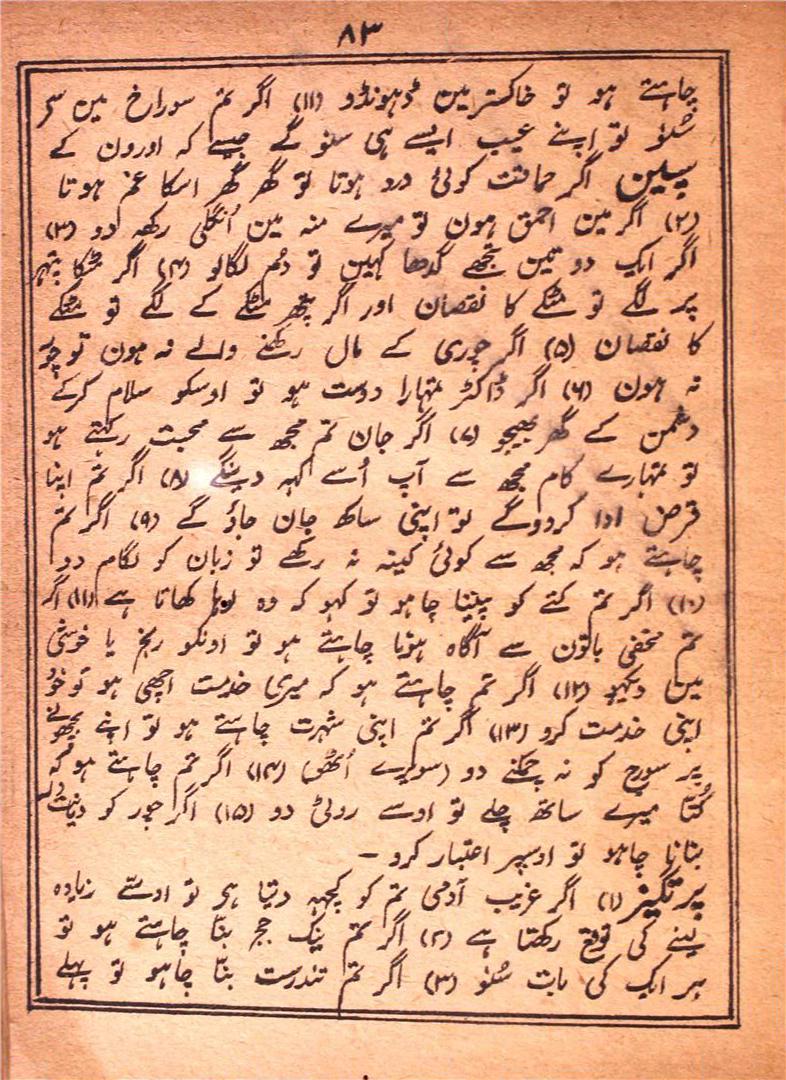 ۸۳
چاہتے ہو تو خاکستر مین ڈہونڈو (۱۱) اگر تم سوراخ مین سے
سُنو تو اپنے عیب ایسے ہی سنو گے جیسے کہ اورون کے
سپین اگر حماقت کوئی درد ہوتا تو گھر گھر اسکا غم ہوتا
(۲) اگر مین احمق ہون تو میرے منہ مین اُنگلی رکھہ دو (۳)
اگر ایک دو تین تجھے گدھا کہین تو دُم لگالو (۴) اگر مٹکا پتہر
پر لگے تو مٹکے کا نقصان اور اگر پتھر مٹکے کے لگے تو مٹکے
کا نقصان (۵) اگر چوری کے مال رکھنے والے نہ ہون تو چور
نہ ہون (۶) اگر ڈاکٹر تمہارا دوست ہو تو اوسکو سلام کرکے
دشمن کے گھر بھیجو (۷) اگر جان تم مجھ سے محبت رکہتے ہو
تو تمہارے کام مجھ سے آپ اُسے کہہ دینگے (۸) اگر تم اپنا
قرض ادا کردوگے تو اپنی ساکھ جان جاؤ گے (۹) اگر تم
چاہتے ہو کہ مجھ سے کوئی کینہ نہ رکھے تو زبان کو لگام دو
(۱۰) اگر تم کتے کو پیٹنا چاہو تو کہو کہ وہ لوہا کھاتا ہے (۱۱) اگر
تم مخفی باتون سے آگاہ ہونا چاہتے ہو تو اونکو رنج یا خوشی
مین دیکہو (۱۲) اگر تم چاہتے ہو کہ میری خدمت اچھی ہو تو خود
اپنی خدمت کرو (۱۳) اگر تم اپنی شہرت چاہتے ہو تو اپنے بچھونے
پر سورج کو نہ چمکنے دو (سویرے اُٹھو) (۱۴) اگر تم چاہتے ہو کہ
کُتا میرے ساتھ چلے تو اوسے روٹی دو (۱۵) اگر چور کو دیانت دار
بنانا چاہو تو اوسپر اعتبار کرو ۔
پرتگیز (۱) اگر غریب آدمی تم کو کچہہ دیتا ہی تو اوسّے زیادہ
لینے کی توقع رکھتا ہے (۲) اگر تم نیک جج بننّا چاہتے ہو تو
ہر ایک کی بات سُنو (۳) اگر تم تندرست بنّا چاہو تو پہلے